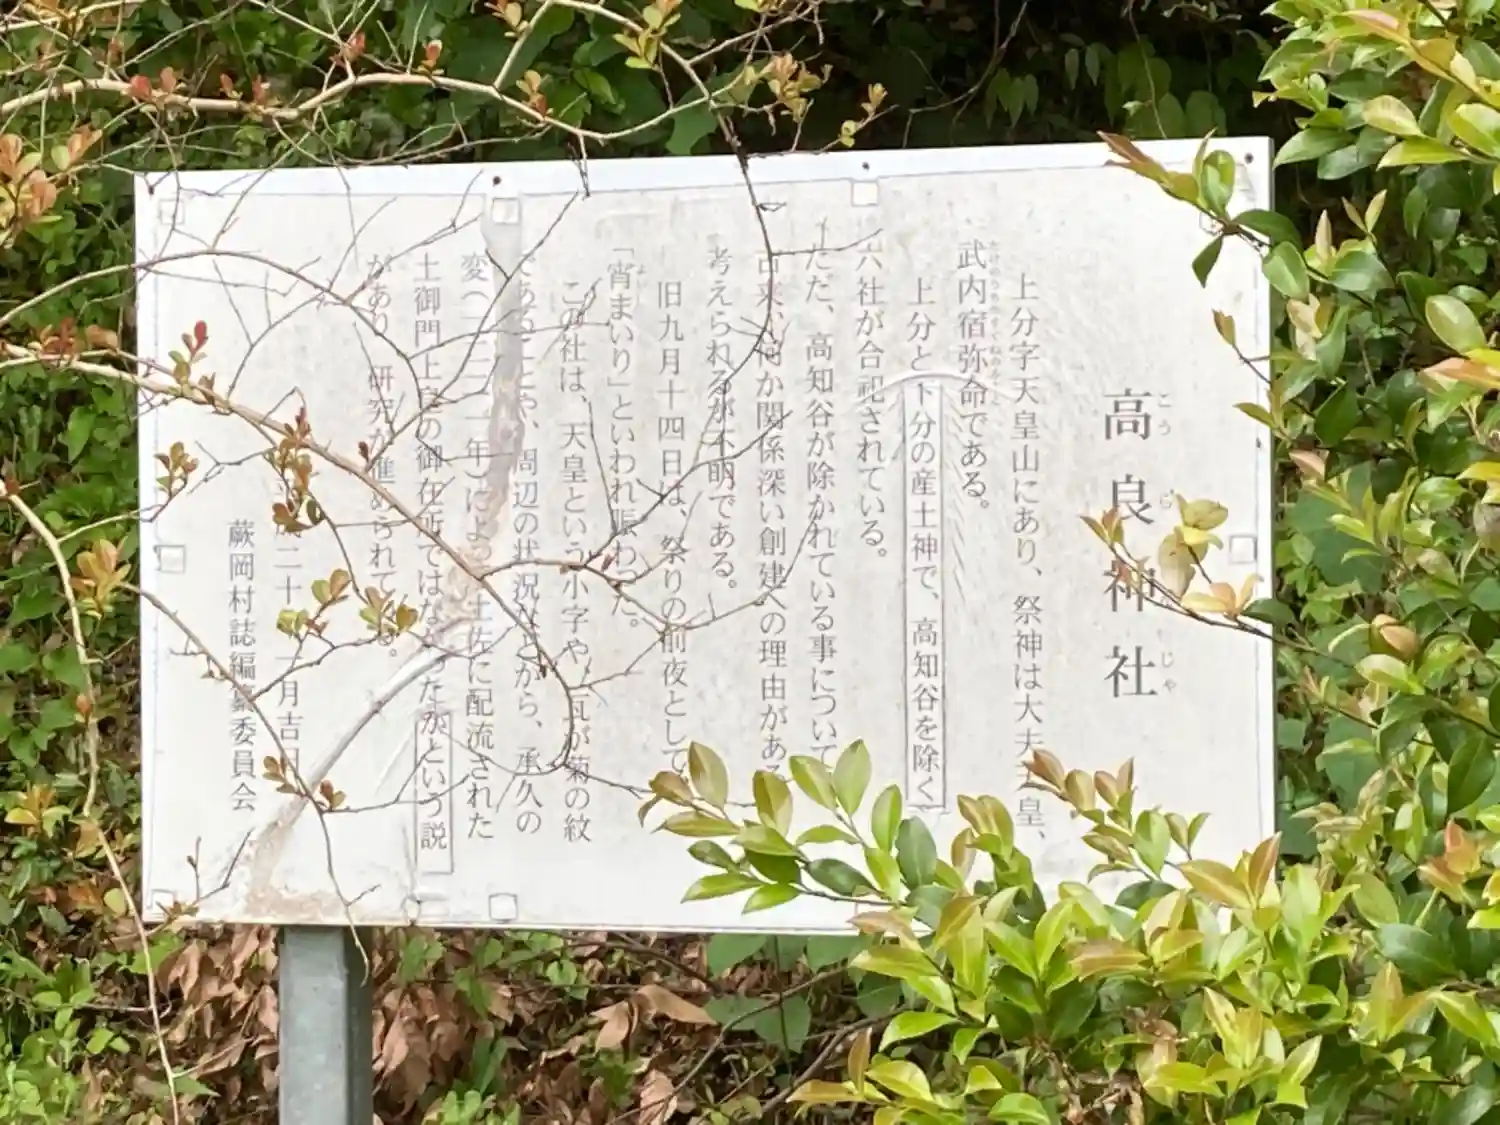 高良神社
上分字天皇山にあり、祭神は大夫天皇、
武内宿弥命である。
上分と下分の産土神で、高知谷を除く
六社が合祀されている。
ただ、高知谷が除かれている事について
古来、何か関係深い創建への理由がある
考えられるが不明である。
旧九月十四日は、祭りの前夜として
「宵まいり」といわれ賑わった。
この社は、天皇という小字や、瓦が菊の紋
であることや、周辺の状況などから、承久の
変(一二二一年)によって土佐に配流された
土御門上皇の御在所ではなかったかという説
があり、研究が進められている。
二十 一月吉日
蕨岡村誌編纂委員会